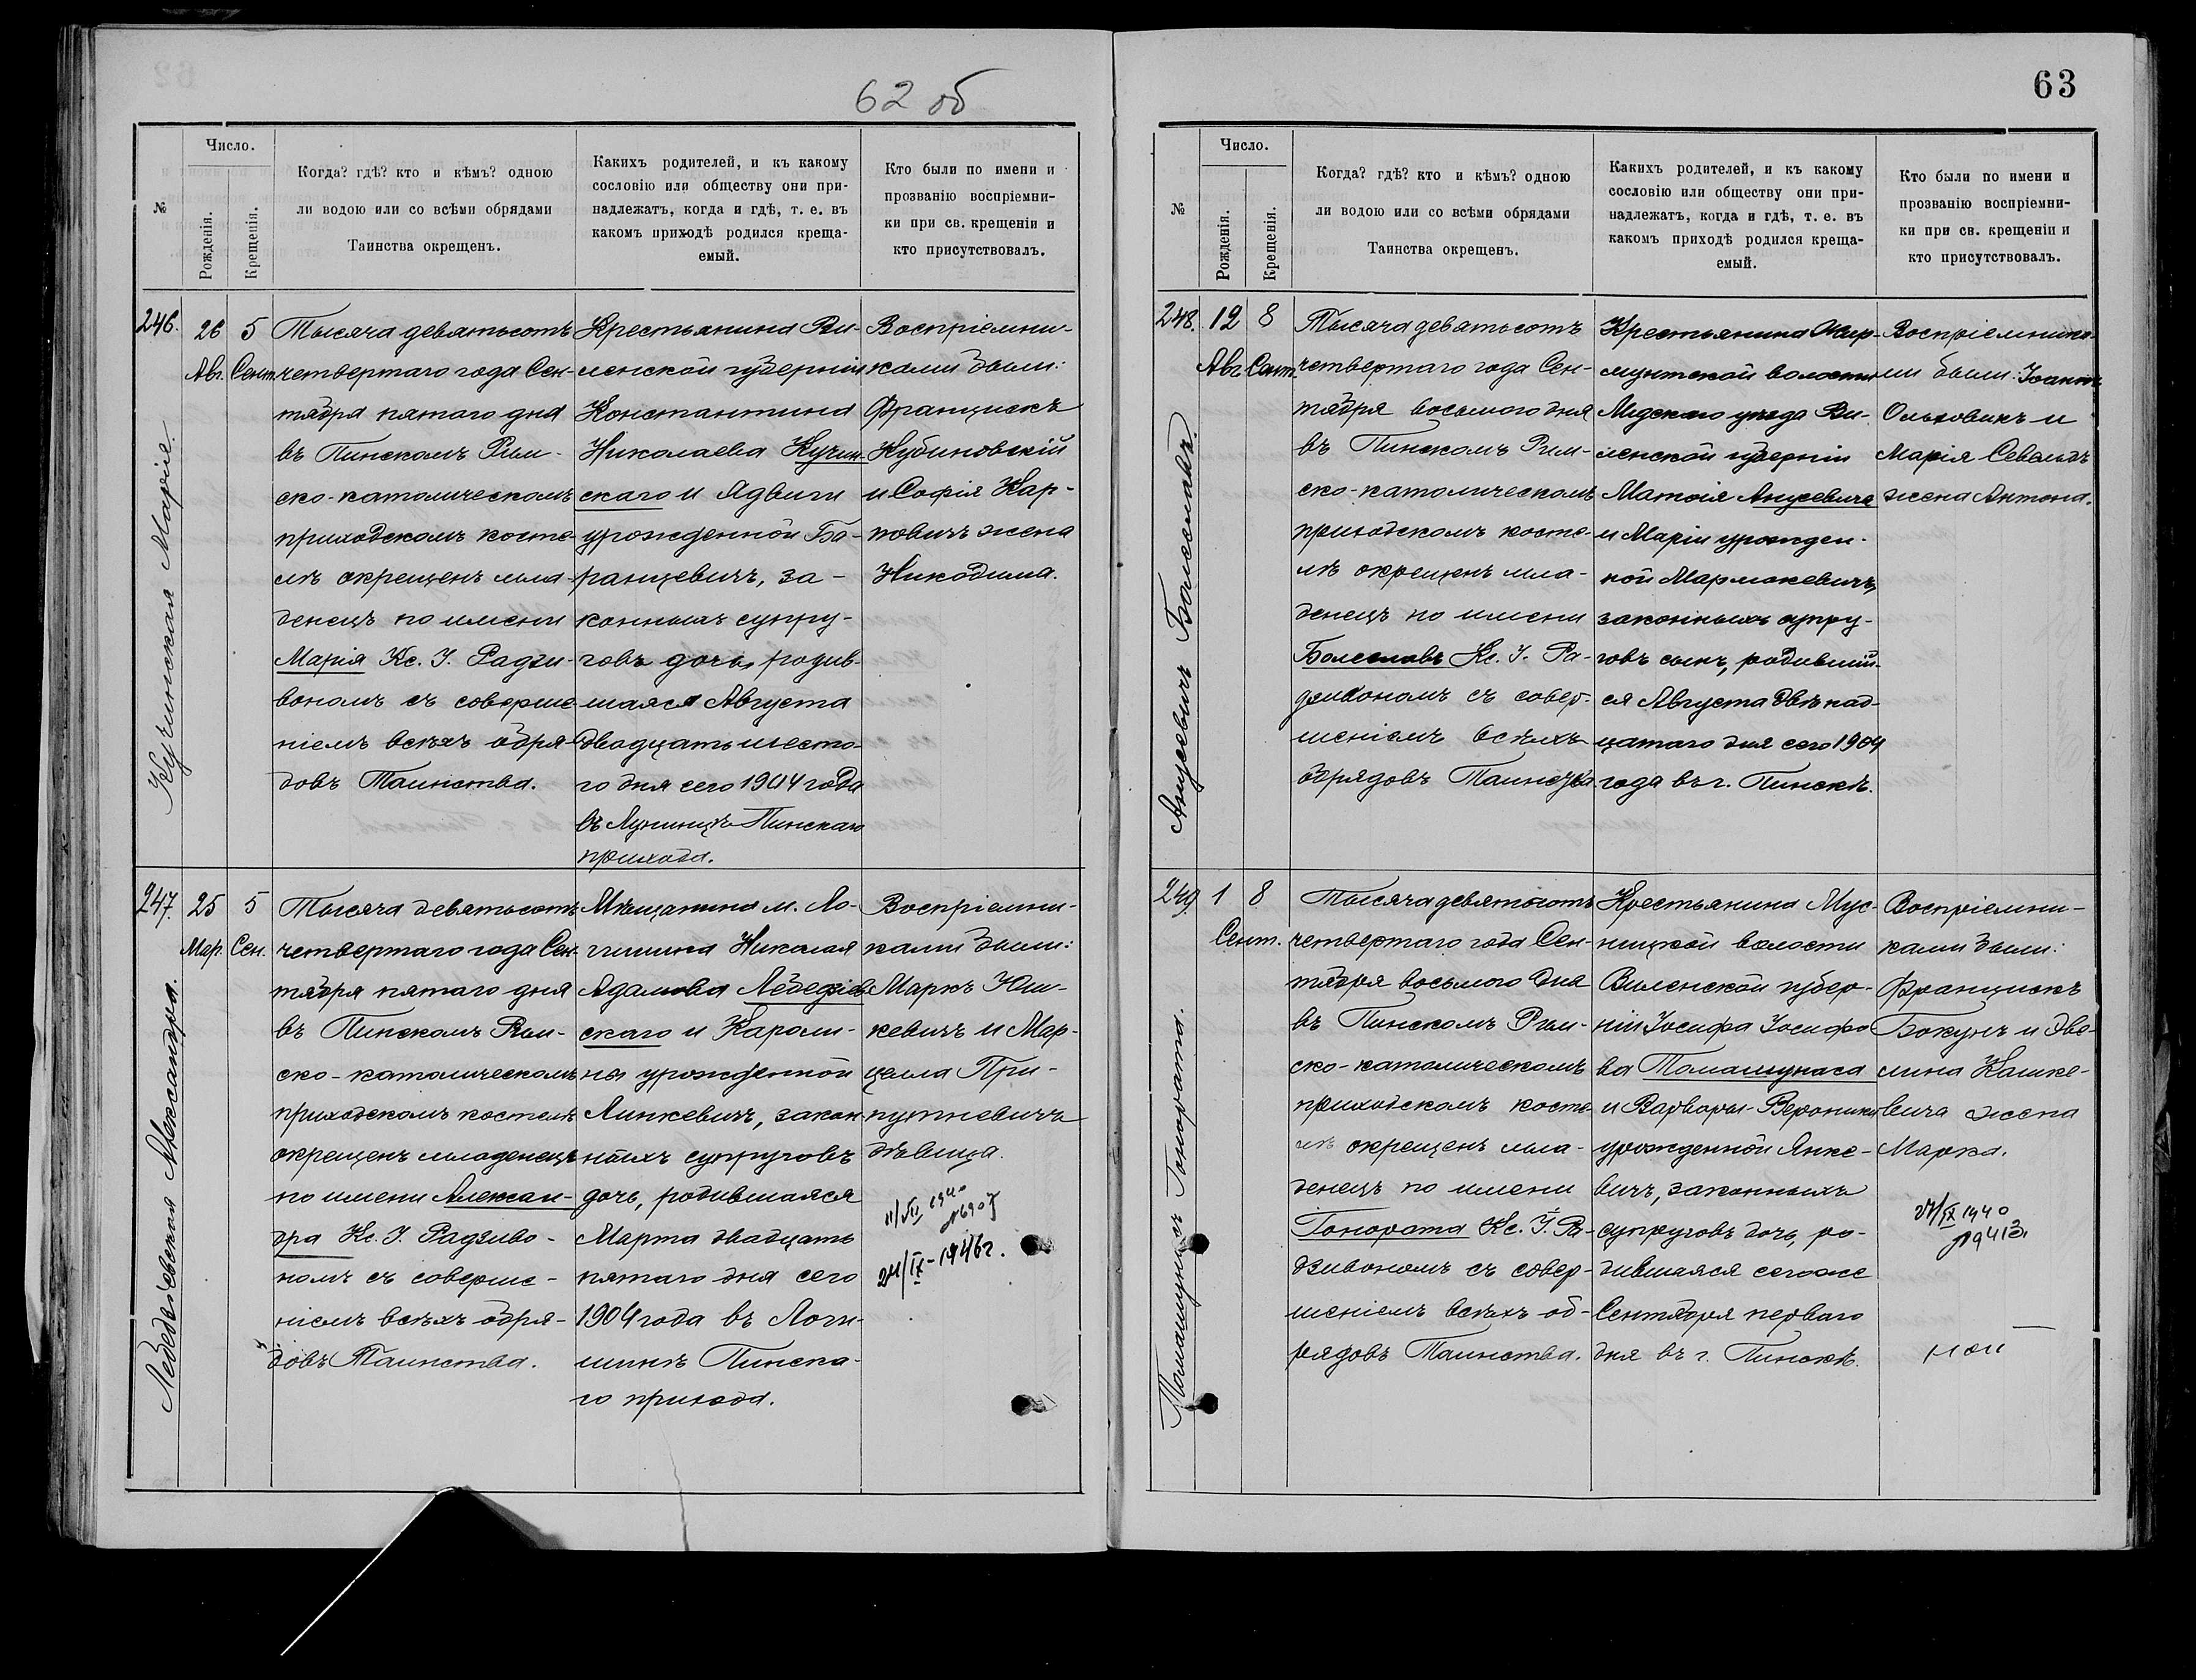 62 об
№
Число.
Рожденія.
Крещенія.
Когда? гдѣ? кто и кѣмъ? одною
ли водою или со всѣми обрядами
Таинства окрещенъ.
Какихъ родителей, и къ какому
сословію или обществу они при-
надлежатъ, когда и гдѣ, т. е. въ
какомъ приходѣ родился креща-
емый.
Кто были по имени и
прозванію воспріемни-
ки при св. крещеніи и
кто присутствовалъ.
246.
Кучинская Марія.
26
Авг.
5
Сент.
Тысяча девятьсотъ
четвертаго года Сен-
тября пятаго дня
въ Пинскомъ Рим-
ско-католическомъ
приходскомъ косте-
лѣ окрещенъ мла-
денецъ по имени
Марія Кс. І. Радзи-
вономъ съ соверше-
ніемъ всѣхъ обря-
довъ Таинства.
Крестьянина Ви-
ленской губерніи
Константина
Николаева Кучин-
скаго и Ядвиги
урожденной Ба-
ранцевичъ, за-
конныхъ супру-
говъ дочь, родив-
шаяся Августа
двадцать шесто-
го дня сего 1904 года
въ Лунинцѣ Пинскаго
прихода.
Воспріемни-
ками были:
Францискъ
Кубиновскій
и Софія Кар-
повичъ жена
Никодима.
247.
Лебедзіевская Александра.
25
Мар.
5
Сен.
Тысяча девятьсотъ
четвертаго года Сен-
тября пятаго дня
въ Пинскомъ Рим-
ско-католическомъ
приходскомъ костелѣ
окрещенъ младенецъ
по имени Алексан-
дра Кс. І. Радзиво-
номъ съ соверше-
ніемъ всѣхъ обря-
довъ Таинства.
Мѣщанина м. Ло-
гишина Николая
Адамова Лебедзіев-
скаго и Кароли-
ны урожденной
Линкевичъ, закон-
ныхъ супруговъ
дочь, родившаяся
Марта двадцать
пятаго дня сего
1904 года въ Логи-
шинѣ Пинска-
го прихода.
Воспріемни-
ками были:
Маркъ Юш-
кевичъ и Мар-
целла При-
путневичъ
дѣвица.
11/VII 1940
24/IX-1946г.
63
№
Число.
Рожденія.
Крещенія.
Когда? гдѣ? кто и кѣмъ? одною
ли водою или со всѣми обрядами
Таинства окрещенъ.
Какихъ родителей, и къ какому
сословію или обществу они при-
надлежатъ, когда и гдѣ, т. е. въ
какомъ приходѣ родился креща-
емый.
Кто были по имени и
прозванію воспріемни-
ки при св. крещеніи и
кто присутствовалъ.
248.
Анусевичъ Болеславъ.
12
Авг.
8
Сент.
Тысяча девятьсотъ
четвертаго года Сен-
тября восьмого дня
въ Пинскомъ Рим-
ско-католическомъ
приходскомъ косте-
лѣ окрещенъ мла-
денецъ по имени
Болеславъ Кс. І. Ра-
дзивономъ съ совер-
шеніемъ всѣхъ
обрядовъ Таинства.
Крестьянина Жир-
мунтской волости
Лидскаго уѣзда Ви-
ленской губерніи
Матоія Анусевича
и Маріи урожден-
ной Мармакевичъ,
законныхъ супру-
говъ сынъ, родившій-
ся Августа двѣнад-
цатаго дня сего 1904
года въ г. Пинскѣ.
Воспріемника-
ми были: Іоаннъ
Ольховикъ и
Марія Севальдъ
жена Антона.
249.
Томашунасъ Гонората.
1
8
Сент.
Тысяча девятьсотъ
четвертаго года Сен-
тября восьмого дня
въ Пинскомъ Рим-
ско-католическомъ
приходскомъ косте-
лѣ окрещенъ мла-
денецъ по имени
Гонората Кс. І. Ра-
дзивономъ съ совер-
шеніемъ всѣхъ об-
рядовъ Таинства.
Крестьянина Мус-
ницкой волости
Виленской губер-
ніи Іосифа Іосифо-
ва Томашунаса
и Варвары-Вероники
урожденной Янке-
вичъ, законныхъ
супруговъ дочь, ро-
дившаяся сегоже
Сентября перваго
дня въ г. Пинскѣ.
Воспріемни-
ками были:
Францискъ
Бокунъ и Эве-
лина Кашке-
вича жена
Марка.
27/IX 1940